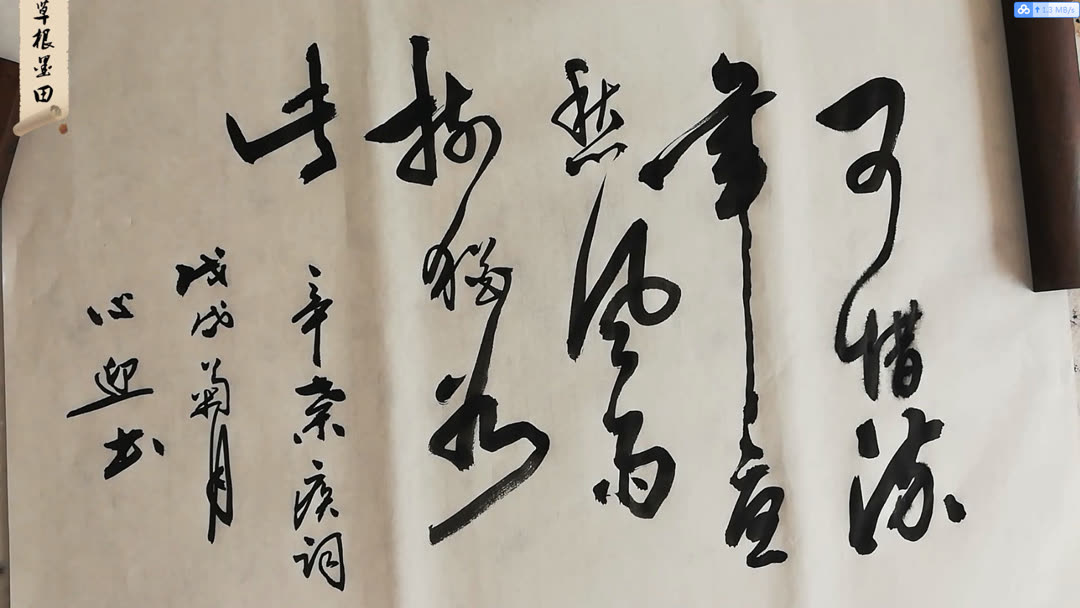 可惜流
年憂
愁风雨
樹猶如
此
辛棄疾词
戊戌菊月
心迎书
草根墨田
1.3 MB/s